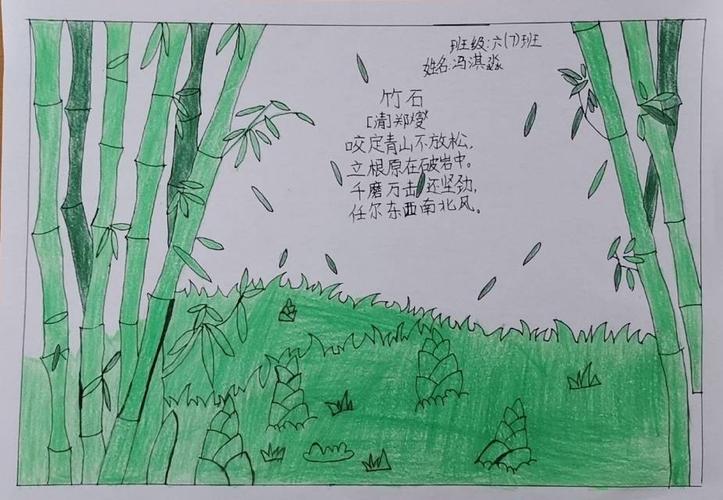 班级:六(7)班
姓名:冯淇淼
竹石
[清]郑燮
咬定青山不放松,
立根原在破岩中。
千磨万击还坚劲,
任尔东西南北风。